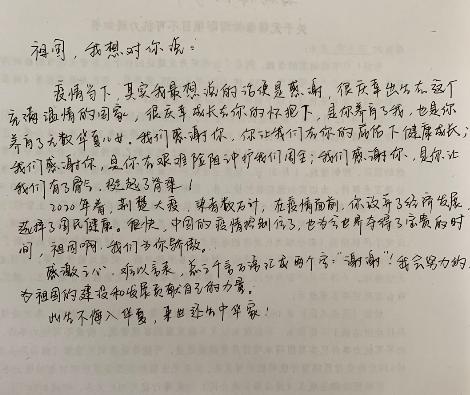 祖国，我想对你说：
疫情当下，其实我最想说的话便是感谢，很庆幸出生在这个
充满温情的国家，很庆幸成长在你的怀抱下，是你养育了我，也是你
养育了无数华夏儿女。我们感谢你，你让我们在你的庇佑下健康成长；
我们感谢你，是你在艰难险阻中护我们周全；我们感谢你，是你让
我们有了骨气，挺起了脊梁！
2020年春，荆楚大疫，染者数万计，在疫情面前，你放弃了经济发展，
选择了国民健康。很快，中国的疫情控制住了，也为全世界夺得了宝贵的时
间，祖国啊，我们为你骄傲。
感激之心，难以言表，千言万语汇成两个字："谢谢"！我会努力的，
为祖国的建设和发展贡献自己的力量。
此生不悔入华夏，来世还在中华家！